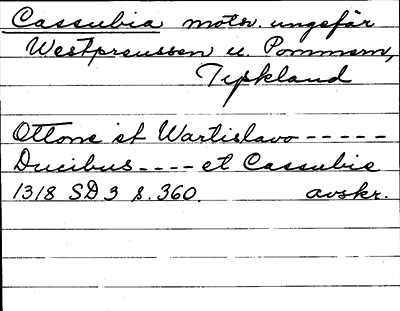 Cassubia motsv. ungefär
Westpreussen u. Pommern,
Tyskland
Ottone et Wartislavo ------
Ducibus ---- et Cassubie
1318 SD 3 s. 360. avskr.